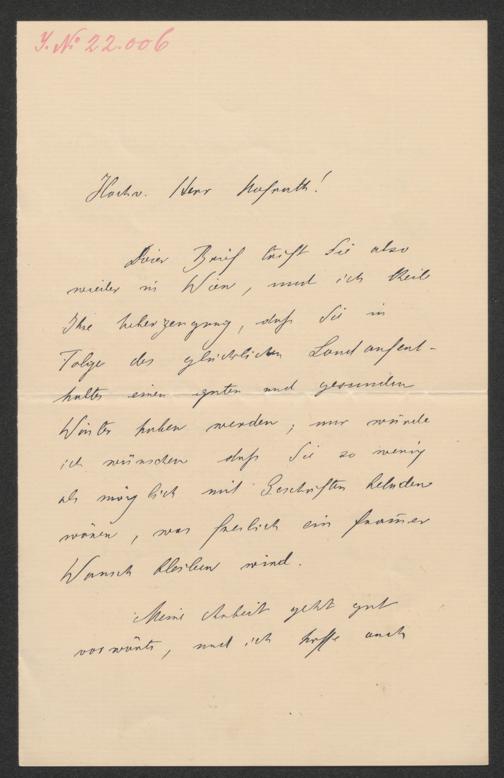 J. № 22.006
Hochv. Herr Hofrath!
Dieser Brief trifft Sie also
wieder in Wien, und ich theile
Ihre Ueberzeugung, daß Sie in
Folge des glücklichen Landaufent-
haltes einen guten und gesunden
Winter haben werden; nur würde
ich wünschen daß Sie so wenig
als möglich mit Geschäften beladen
wären, was freilich ein frommer
Wunsch bleiben wird.
Meine Arbeit geht gut
vorwärts, und ich hoffe auch